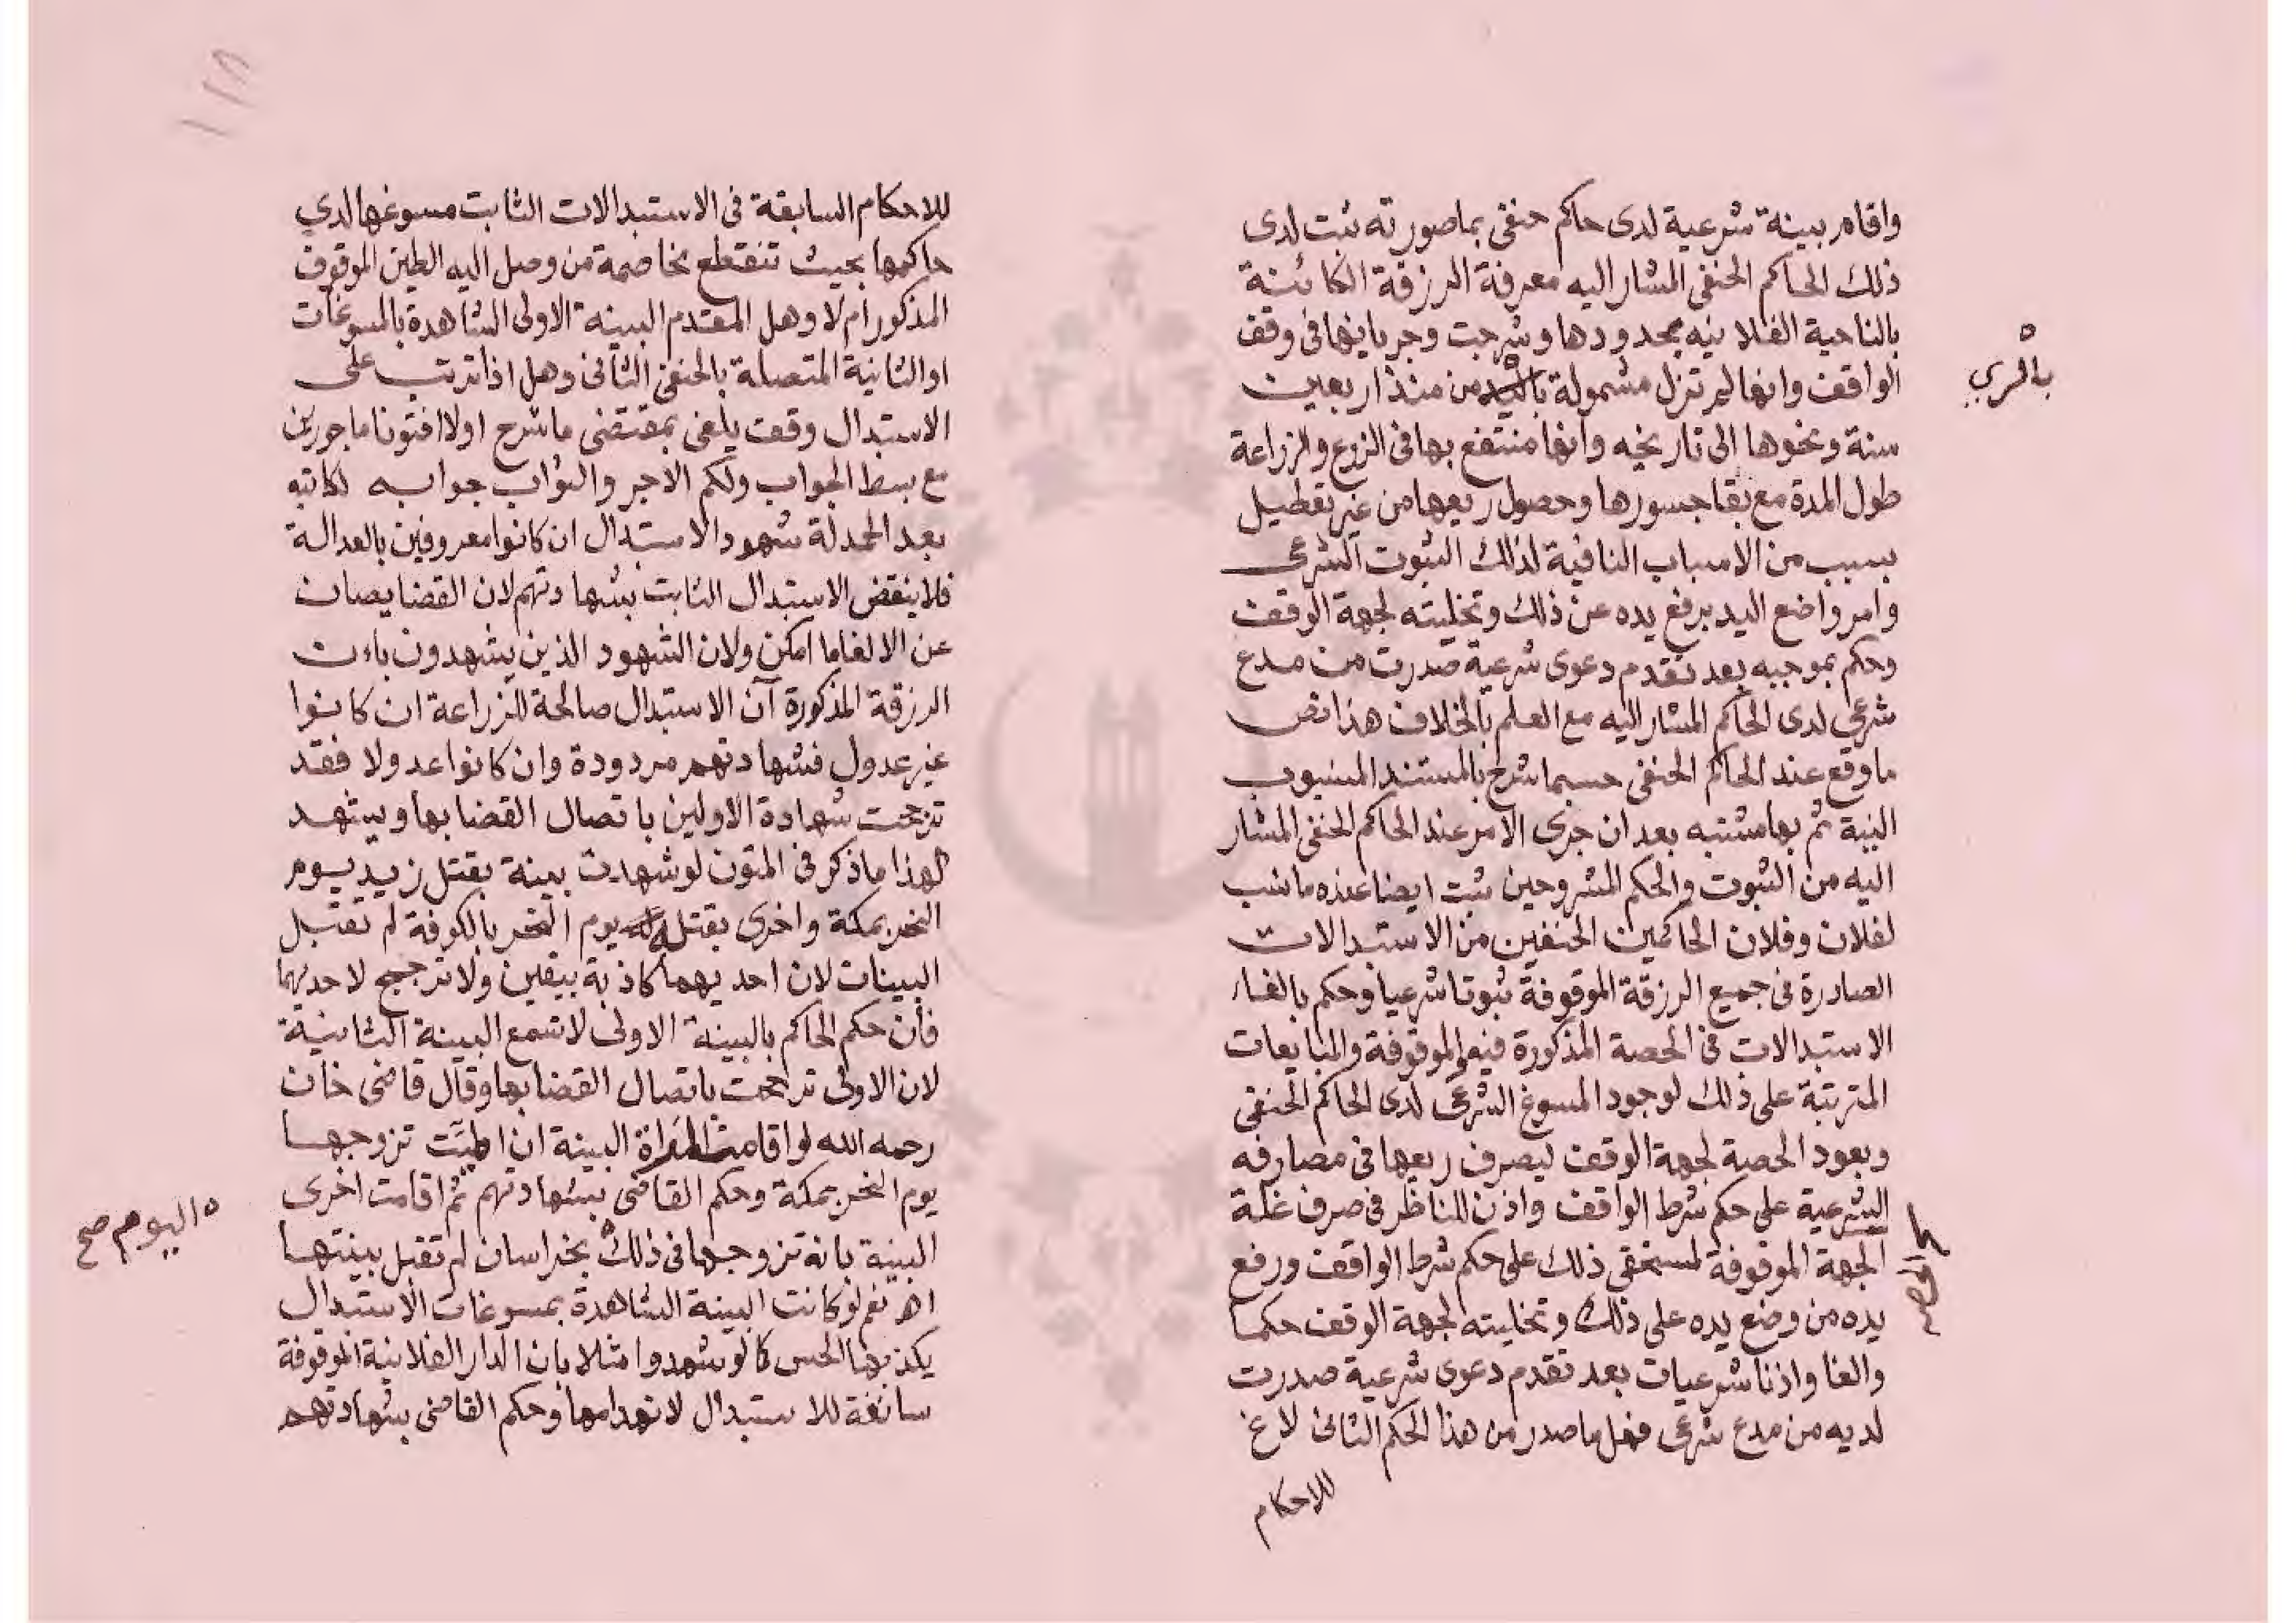 واقام بينة شرعية لدى حاكم حنفى بما صورته ثبت لدى
ذلك الحاكم الحنفى المشار اليه معرفة الرزقة الكائنة
بالناحية الفلانيه بحدودها وشرحت وجريانها فى وقف
الواقف وانها لم تزل مشمولة من منذ اربعين
بالري
سنة ونحوها الى تاريخه وانها منتفع بها فى الزرع والزراعة
طول المدة مع بقا جسورها وحصول ريعها من غير تعطيل
بسبب من الاسباب النافية لذلك الثبوت الشرعى
وامر واضع اليد برفع يده عن ذلك وتخليته لجهة الوقف
وحكم بموجبه بعد تقدم دعوى شرعية صدرت من مدع
شرعي لدى الحاكم المشار اليه مع العلم بالخلاف هذا نص
ما وقع عند الحاكم الحنفى حسبما شرح بالمستند المنسوب
اليه ثم بهامشه بعد ان جرى الامر عند الحاكم الحنفى المشار
اليه من الثبوت والحكم المشروحين ثبت ايضا عنده ما نسب
لفلان وفلان الحاكمين الحنفين من الاستبدالات
الصادرة فى جميع الرزقة الموقوفة ثبوتا شرعيا وحكم بالغاء
الاستبدالات فى الحصة المذكورة فيه والموقوفة والمبايعات
المترتبة على ذلك لوجود المسوغ الشرعى لدى الحاكم الحنفى
وبعود الحصة لجهة الوقف ليصرف ريعها فى مصارفه
الشرعية على حكم شرط الواقف واذن للناظر فى صرف غلة
الجهة الموقوفة لمستحقى ذلك على حكم شرط الواقف ورفع
يده من وضع يده على ذلك وتخليته لجهة الوقف حكما
والغا واذنا شرعيات بعد تقدم دعوى شرعية صدرت
لديه من مدع شرعى فهل ما صدر من هذا الحكم الثانى لاغ
للاحكام
للاحكام السابقة فى الاستبدالات الثابت مسوغها لدي
حاكمها بحيث تنقطع مخاصمة من وصل اليه الطين الموقوف
المذكور أم لا وهل المقتدم البينة الاولى الشاهدة بالمسوغات
او الثانية المتصلة بالحنفى الثانى وهل اذا ترتب على
الاستبدال وقف يلغى بمقتضى ما شرح اولا افتونا ماجورين
مع بسط الجواب ولكم الاجر والثواب جوابه لكاتبه
بعد الحمدلة شهود الاستبدال ان كانوا معروفين بالعدالة
فلا ينقض الاستبدال الثابت بشهادتهم لان القضا يصان
عن الالغا ما امكن ولان الشهود الذين يشهدون بان
الرزقة المذكورة آن الاستبدال صالحة للزراعة ان كانوا
غير عدول فشهادتهم مردودة وان كانوا عدولا فقد
ترجحت شهادة الاولين باتصال القضا بها ويشهد
لهذا ما ذكر فى المتون لو شهدت بينة بقتل زيد يوم
النحر بمكة واخرى بقتله يوم النحر بالكوفة لم تقبل
البينات لان احديهما كاذبة بيقين ولا ترجيح لاحديهما
فان حكم الحاكم بالبينة الاولى لا تسمع البينة الثانية
لان الاولى ترجحت باتصال القضا بها وقال قاضى خان
رحمه الله لو اقامت المراة البينة ان تزوجها
يوم النحر بمكة وحكم القاضى بشهادتهم ثم اقامت اخرى
البينة بانه تزوجها فى ذلك بخراسان لم تقبل بينتها
اليوم صح
اه نعم لو كانت البينة الشاهدة بمسوغات الاستبدال
يكذبها الحس كما لو شهدوا مثلا بان الدار الفلانية الموقوفة
سائغة للاستبدال لانهدامها وحكم القاضى بشهادتهم